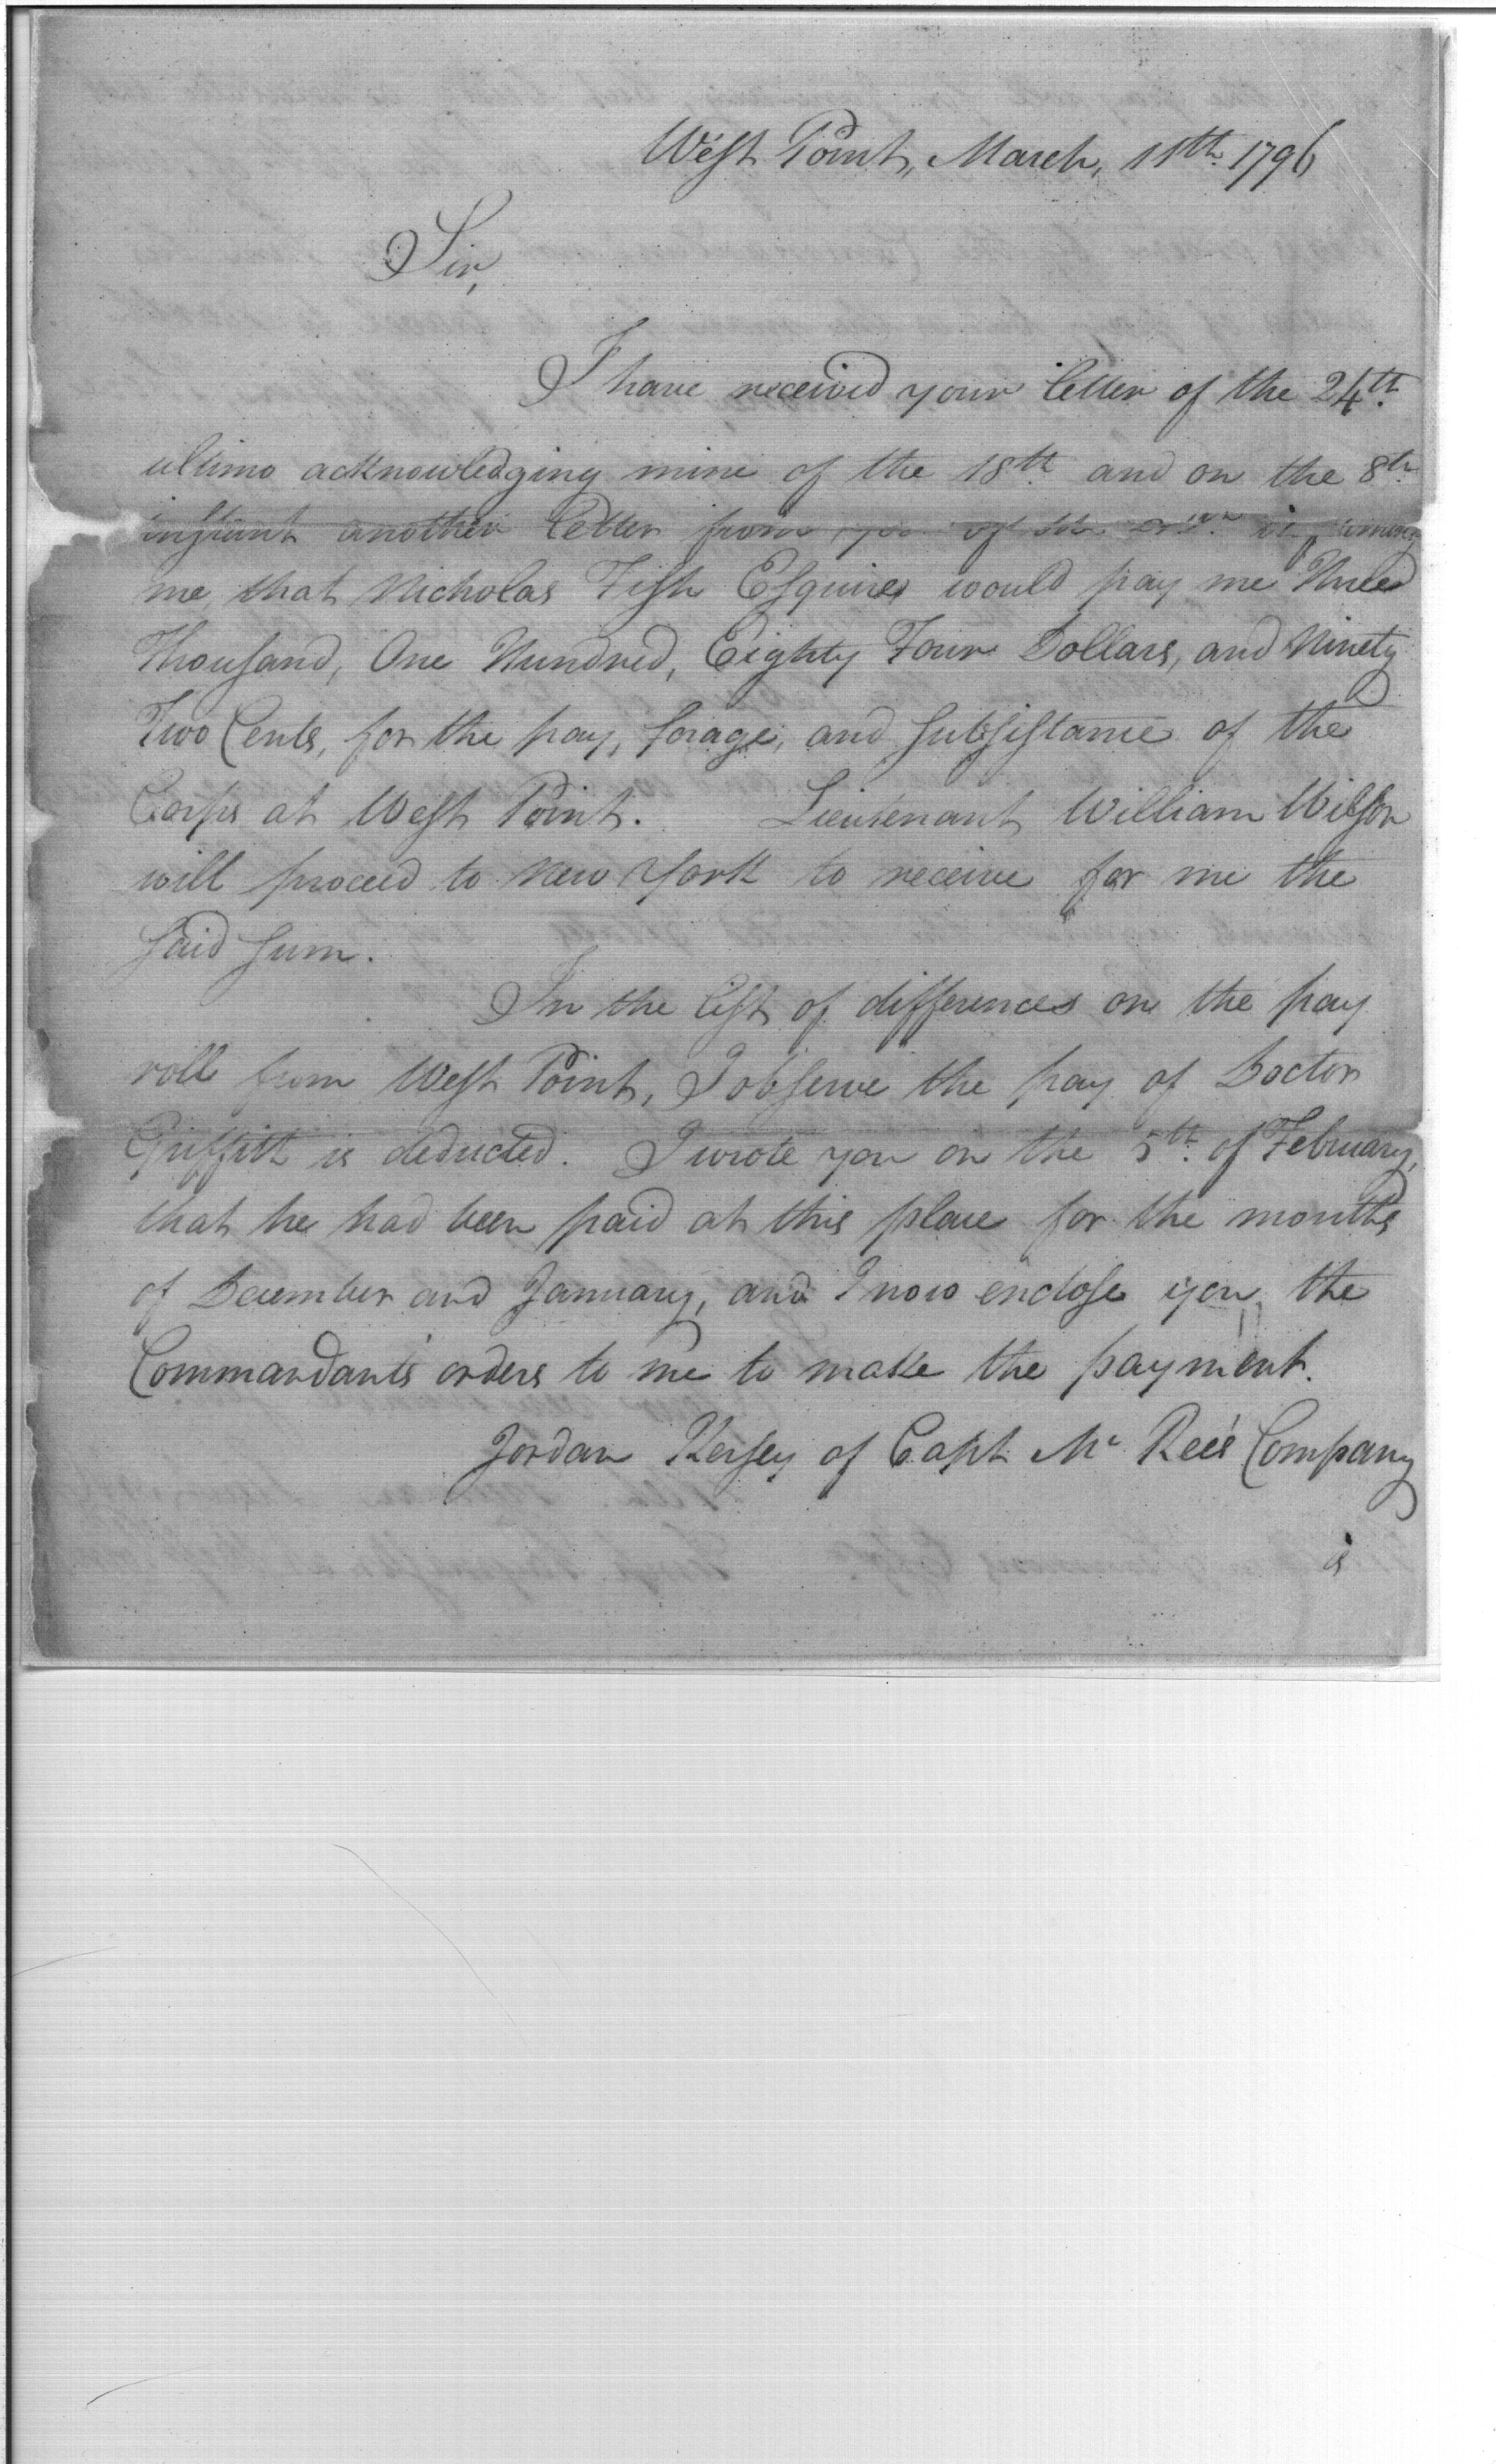 West Point, March, 11th. 1796
Sir,
I have received your letter of the 24th.
ultimo acknowledging mine of the 18th. and on the 8th.
instant another letter from you of the
me, that Nicholas Fish Esquire would pay me Three
Thousand, One Hundred, Eighty Four Dollars, and Ninety
Two Cents, for the pay, forage, and subsistance of the
Corps at West Point. Lieutenant William Wilson
will proceed to New York to receive for me the
said sum.
In the list of differences on the pay
roll from West Point, I observe the pay of Doctor
Griffith is deducted. I wrote you on the 5th. of February,
that he had been paid at this place for the months
of December and January, and I now enclose you, the
Commandants orders to me to make the payment.
Jordan Kersey of Capt. Mc. Ree's Company
is